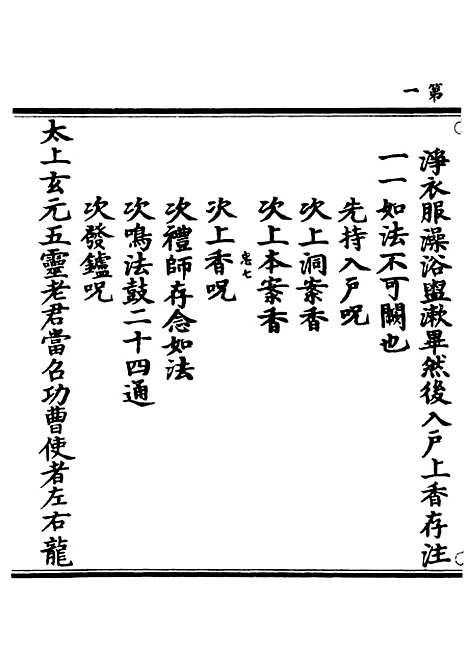 第一
淨衣服澡浴盥漱畢然後入戶上香存注
一一如法不可闕也
先持入戶呪
次上洞案香
次上本案香
次上香呪
次禮師存念如法
次鳴法鼓二十四通
次發鑪呪
太上玄元五靈老君當召功曹使者左右龍